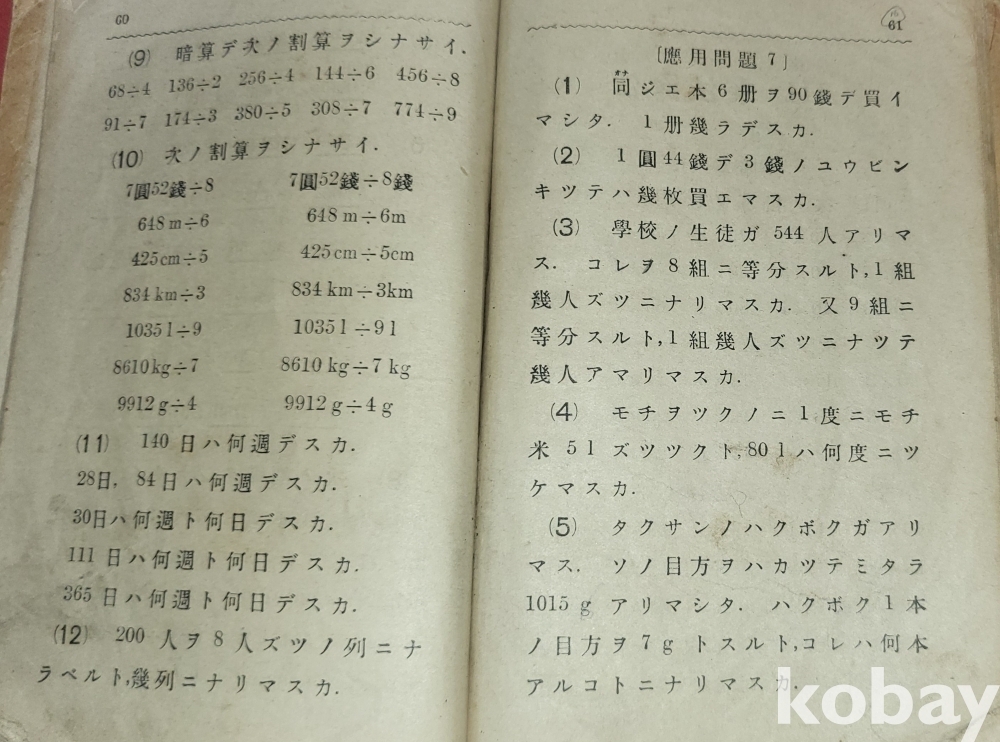 60
(9) 暗算デ次ノ割算ヲシナサイ.
68÷4 136÷2 256÷4 144÷6 456÷8
91÷7 174÷3 380÷5 308÷7 774÷9
(10) 次ノ割算ヲシナサイ.
7圓52錢÷8 7圓52錢÷8錢
648m÷6 648m÷6m
425cm÷5 425cm÷5cm
834km÷3 834km÷3km
1035l÷9 1035l÷9l
8610kg÷7 8610kg÷7kg
9912g÷4 9912g÷4g
(11) 140日ハ何週デスカ.
28日, 84日ハ何週デスカ.
30日ハ何週ト何日デスカ.
111日ハ何週ト何日デスカ.
365日ハ何週ト何日デスカ.
(12) 200人ヲ8人ズツノ列ニナ
ラベルト,幾列ニナリマスカ.
61
[應用問題7]
(1) 同ジエ本6册ヲ90錢デ買イ
オナ
マシタ. 1册幾ラデスカ.
(2) 1圓44錢デ3錢ノユウビン
キツテハ幾枚買エマスカ.
(3) 學校ノ生徒ガ544人アリマ
ス. コレヲ8組ニ等分スルト,1組
幾人ズツニナリマスカ. 又9組ニ
等分スルト,1組幾人ズツニナツテ
幾人アマリマスカ.
(4) モチヲツクノニ1度ニモチ
米5lズツツクト,80lハ何度ニツ
ケマスカ.
(5) タクサンノハクボクガアリ
マス. ソノ目方ヲハカツテミタラ
1015gアリマシタ. ハクボク1本
ノ目方ヲ7gトスルト,コレハ何本
アルコトニナリマスカ.
kobay